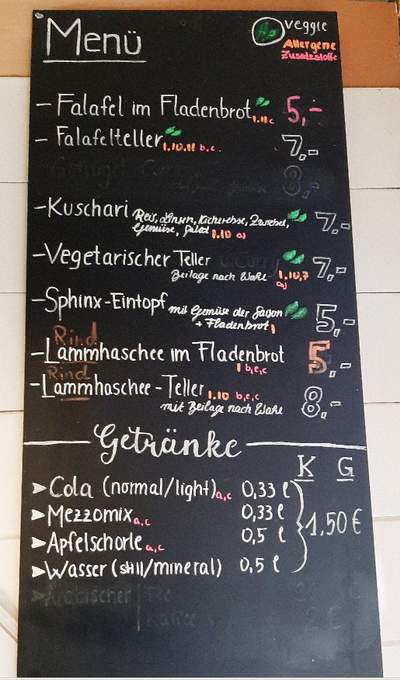 Menü
veggie
Allergene
Zusatzstoffe
– Falafel im Fladenbrot 1.11 c 5,-
– Falafelteller 1.10.11 b,c 7,-
8,-
– Kuschari Reis, Linsen, Kichererbse, Zwiebel, 7,-
Gemüse, Salat 1.10 a,j
– Vegetarischer Teller 7,-
Beilage nach Wahl 1,10,7
a,j
– Sphinx-Eintopf mit Gemüse der Saison 5,-
+ Fladenbrot 1
Rind
– Lammhaschee im Fladenbrot 5,-
1 b,e,c
Rind
– Lammhaschee - Teller 1.10 b,e,c 8,-
mit Beilage nach Wahl
Getränke
K G
➤ Cola (normal/light) a,c 0,33 l
➤ Mezzomix a,c 0,33 l
➤ Apfelschorle a,c 0,5 l
1,50 €
➤ Wasser (still/mineral) 0,5 l
➤ Arabischer Tee
Kaffee 2 €